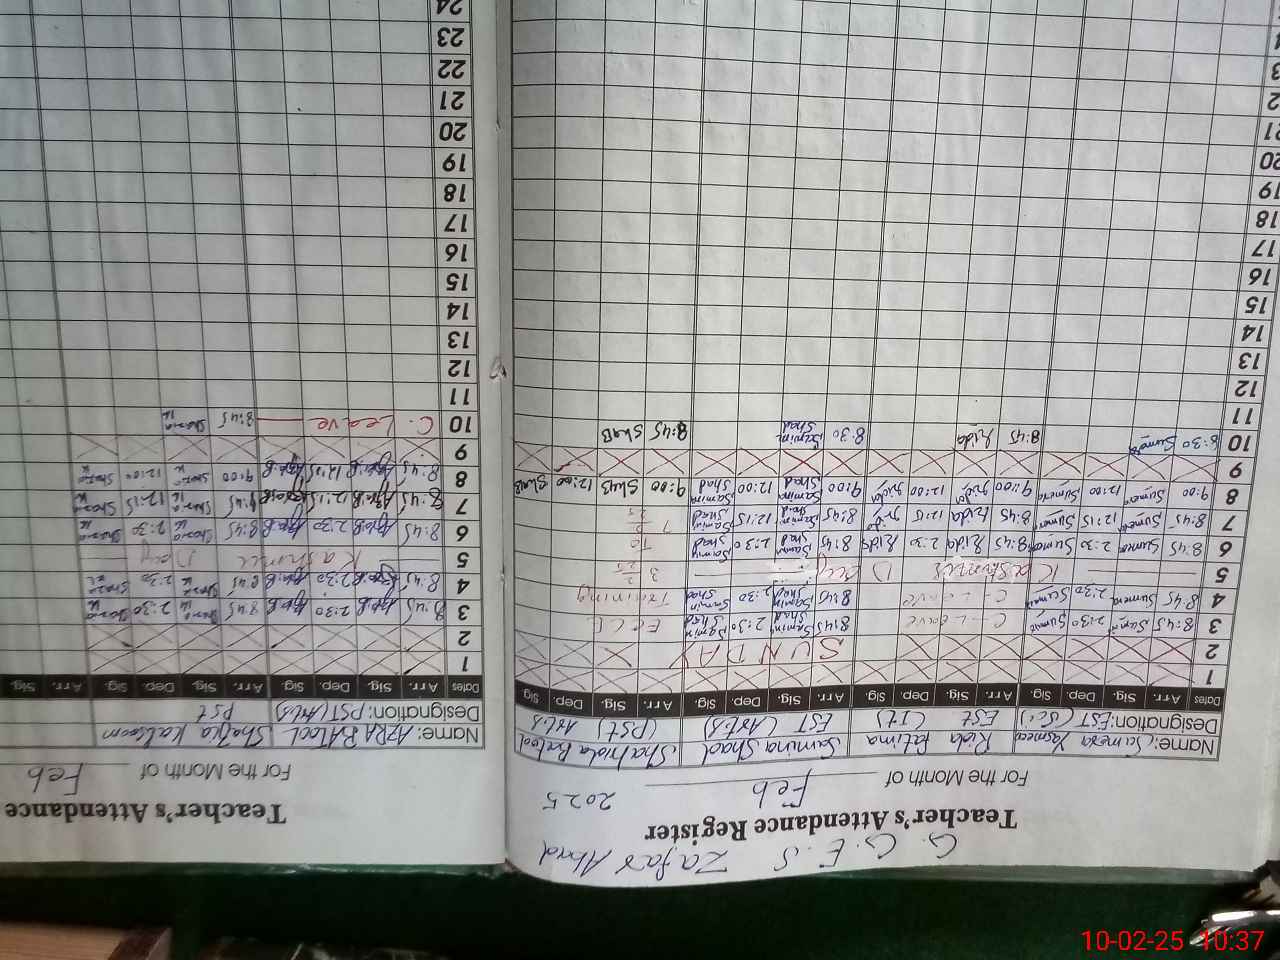 G. G. E. S Zafar Abad
Teacher's Attendance Register
For the Month of Feb 2025
Name: Sumera Yasmeen Rida Fatima Samina Shad Shahida Batool
Designation: EST (Sci) Est (IT) EST (Arts) (PST) Arts
Dates Arr. Sig. Dep. Sig. Arr. Sig. Dep. Sig. Arr. Sig. Dep. Sig. Arr. Sig. Dep. Sig.
1
2 SUNDAY
3 8:45 2:30 C-Leave 8:45 Samina Shad 2:30 Samina Shad ECCE
4 8:45 Sumera 2:30 Sumera C-Leave 8:45 Samina Shad 2:30 Samina Shad Training
5 Kashmir Day 3 2 25
6 8:45 Sumera 2:30 Sumera 8:45 Rida 2:30 Rida 8:45 Samina Shad 2:30 Samina Shad To
7 8:45 Sumera 12:15 Sumera 8:45 Rida 12:15 Rida 8:45 Samina Shad 12:15 Samina Shad 7 2 25
8 9:00 Sumera 12:00 Sumera 9:00 Rida 12:00 Rida 9:00 Samina Shad 12:00 Samina Shad 9:00 12:00
9
10 8:30 Sumera 8:45 Rida 8:30 Samina Shad 8:45 ShaB
11
12
13
14
15
16
17
18
19
20
21
Teacher's Attendance
For the Month of Feb
Name: AZRA BATOOL Shazia Kalsoom
Designation: PST (Arts) Pst
Dates Arr. Sig. Dep. Sig. Arr. Sig. Dep. Sig. Arr. Sig.
1
2
3 8:45 2:30 8:45 Shazia K 2:30 Shazia K
4 8:45 2:30 8:45 Shazia K 2:30 Shazia K
5 Kashmir Day
6 8:45 2:30 8:45 Shazia K 2:30 Shazia K
7 8:45 12:15 8:45 Shazia K 12:15 Shazia K
8 8:45 12:15 9:00 Shazia K 12:00 Shazia K
9
10 C. Leave 8:45 Shazia K
11
12
13
14
15
16
17
18
19
20
21
22
23
24
10-02-25 10:37